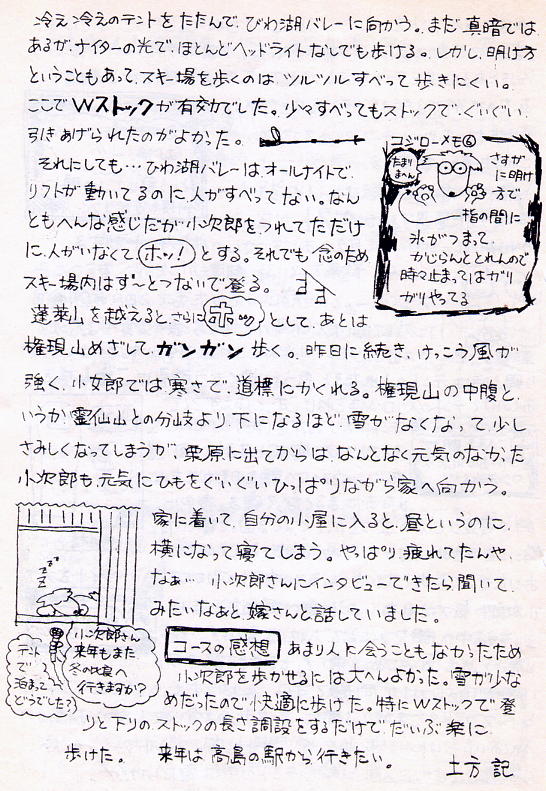 冷え冷えのテントをたたんで、びわ湖バレーに向かう。まだ真暗では
あるが、ナイターの光で、ほとんどヘッドライトなしでも歩ける。しかし、明け方
ということもあって、スキー場を歩くのは、ツルツルすべって歩きにくい。
ここでWストックが有効でした。少々すべってもストックで、ぐいぐい、
引きあげられたのがよかった。
それにしても…びわ湖バレーは、オールナイトで、
リフトが動いてるのに、人がすべってない。なん
ともへんな感じだが、小次郎をつれてただけ
に、人がいなくて、ホッ!とする。それでも、念のため
スキー場内はず〜とつないで登る。
蓬莱山を越えると、さらにホッとして、あとは
権現山めざして、ガンガン歩く。昨日に続き、けっこう風が
強く、小女郎では、寒さで、道標にかくれる。権現山の中腹と、
いうか、霊仙山との分岐より、下になるほど、雪がなくなって、少し
さみしくなってしまうが、栗原に出てからは、なんとなく元気のなかった
小次郎も、元気にひもをぐいぐいひっぱりながら家へ向かう。
コジローメモ⑥
たまりまへん
さすが
に明け
方で、
指の間に
氷がつまって、
かじらんととれんので
時々止まってはガリ
ガリやってる
家に着いて、自分の小屋に入ると、昼というのに、
横になって寝てしまう。やっぱり疲れてたんや、
なぁ… 小次郎さんにインタビューできたら聞いて、
みたいなぁと、嫁さんと話していました。
zzz
小次郎さん
来年もまた、
冬の比良へ
行きますか?
テント
で
泊まって
どうでした?
コースの感想
あまり人に会うこともなかったため
小次郎を歩かせるには大へんよかった。雪が少な
めだったので快適に歩けた。特にWストックで登
りと下りの、ストックの長さ調設をするだけで、だいぶ楽に
歩けた。 来年は高島の駅から行きたい。
土方 記